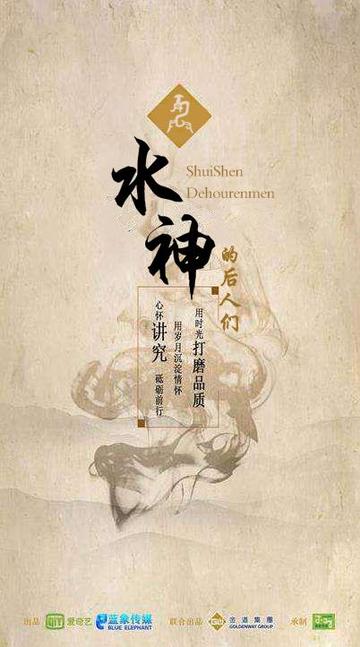 水神
ShuiShen
Dehourenmen
的后人们
用时光打磨品质
用岁月沉淀情怀
心怀讲究 砥砺前行
出品 iQIYI 爱奇艺 蓝象传媒 BLUE ELEPHANT 联合出品 金道集团 GOLDENWAY GROUP 承制